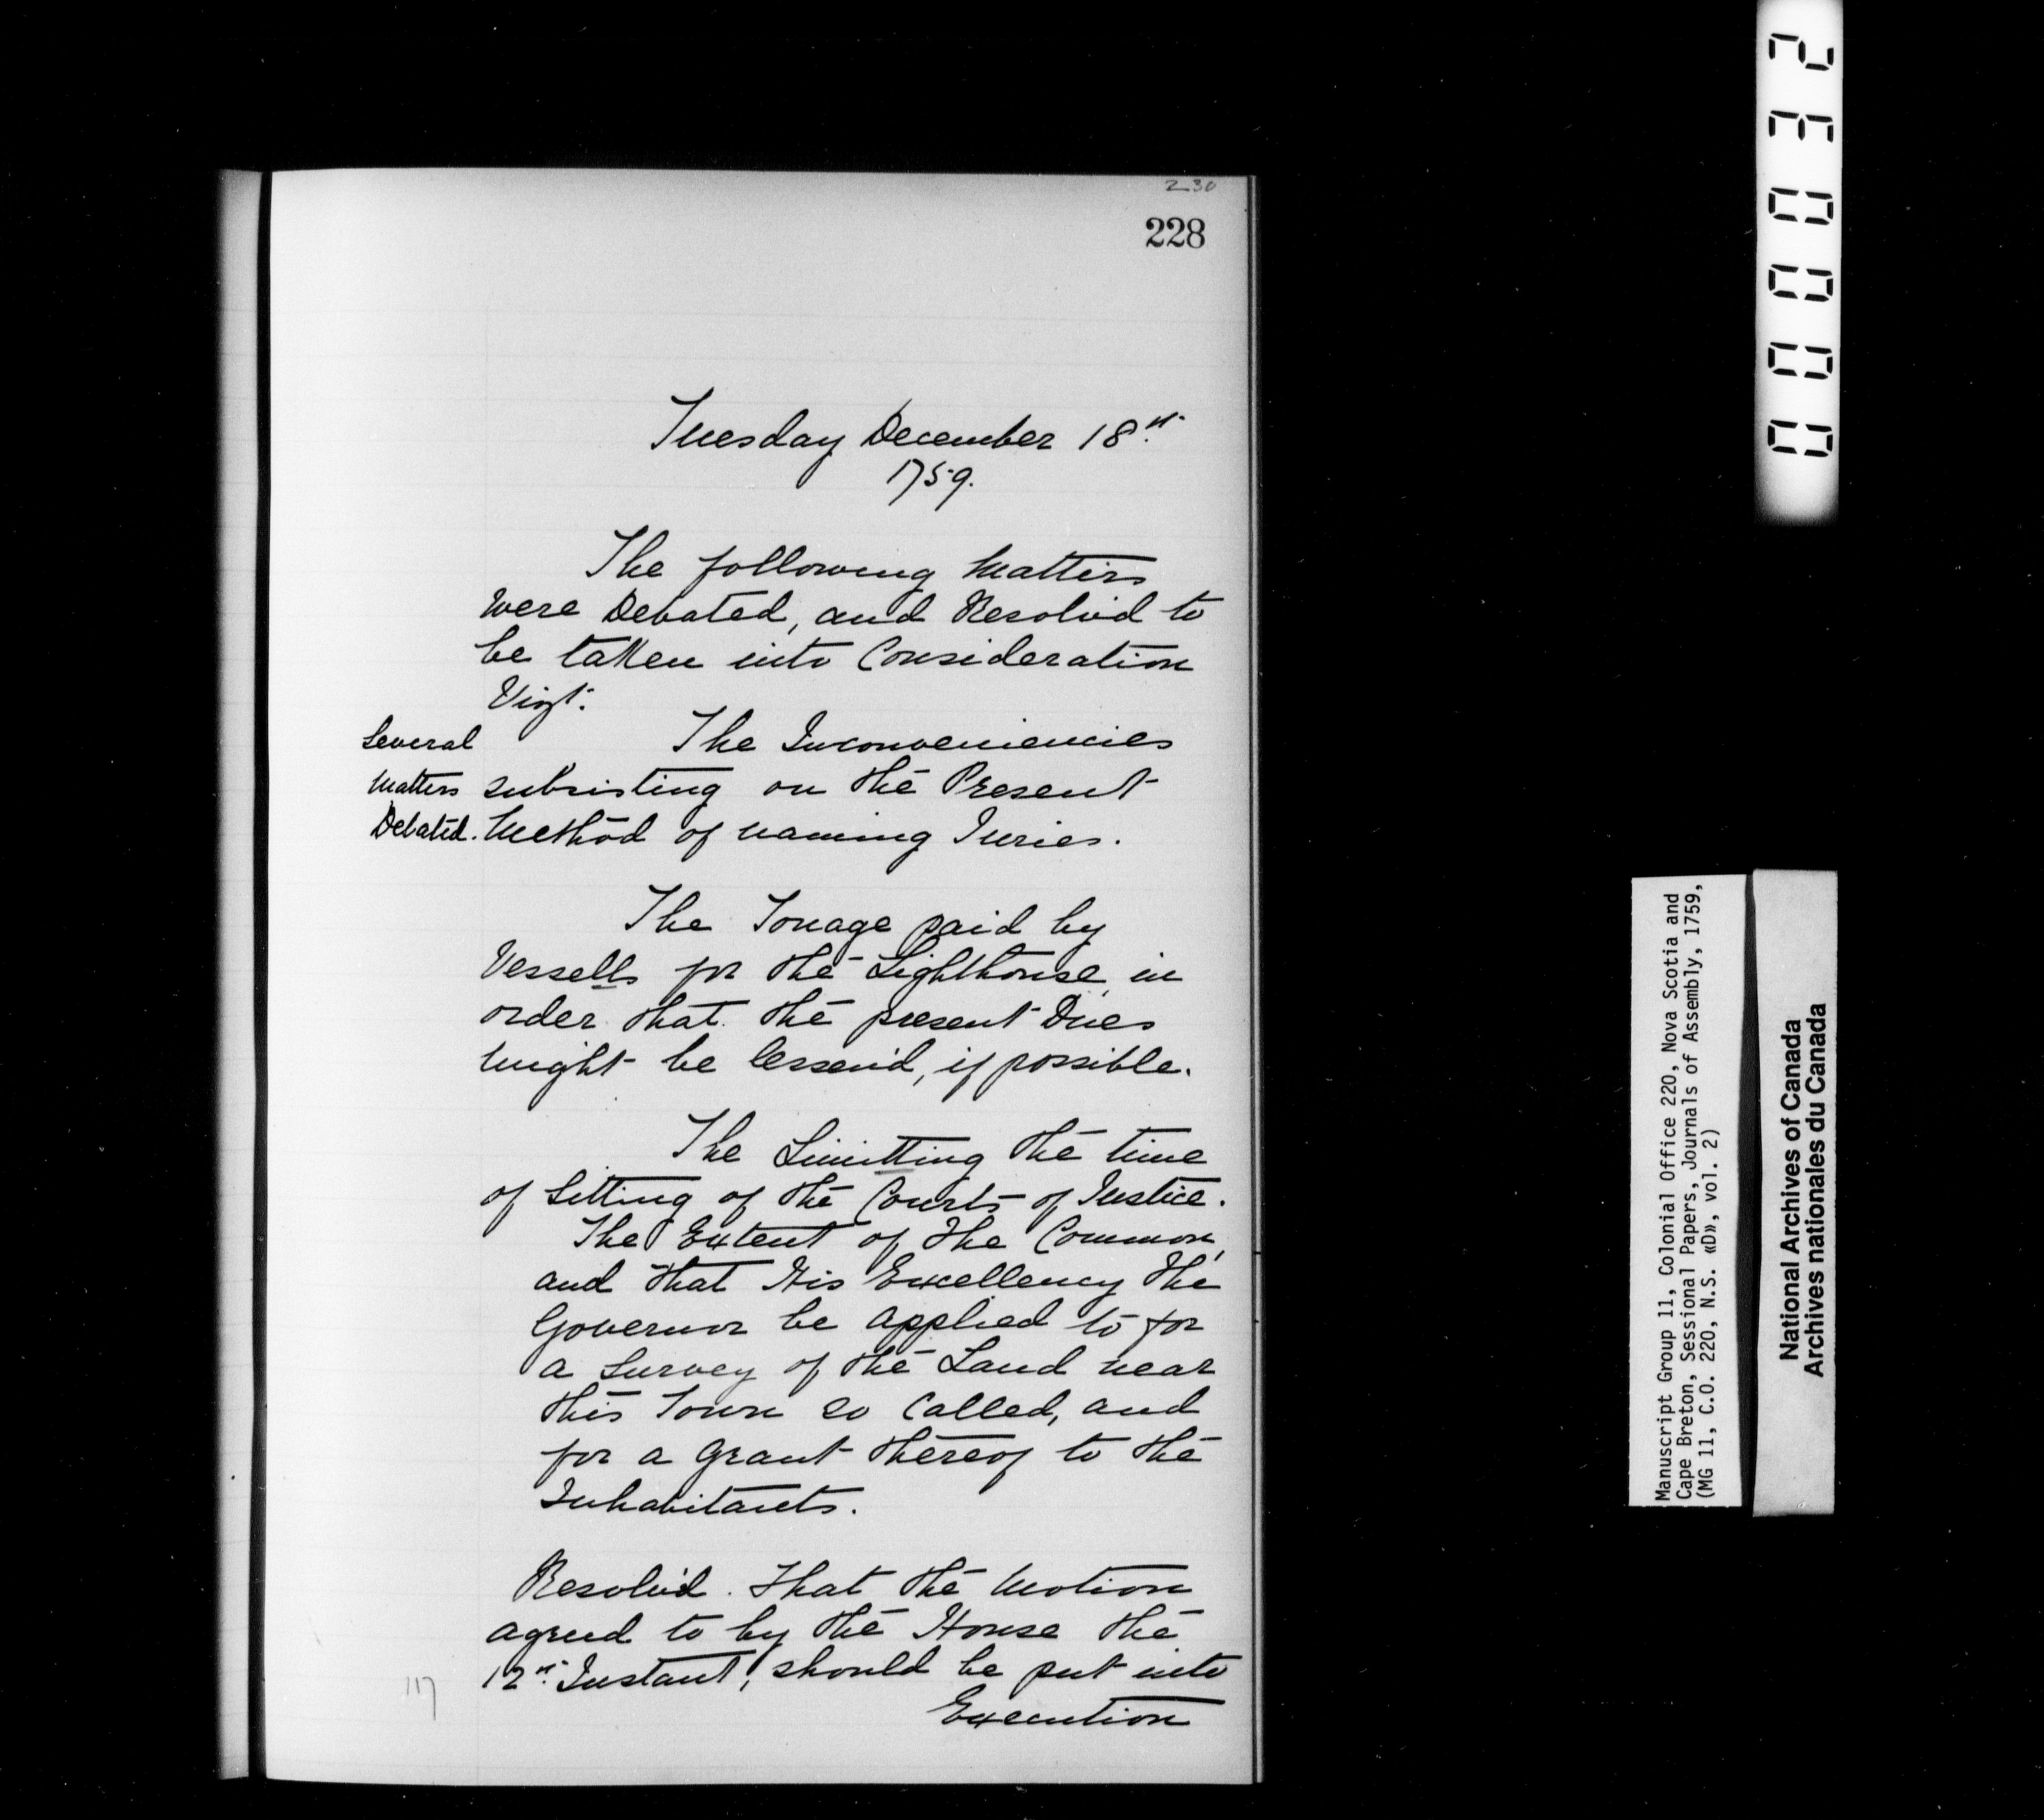 230
228
Tuesday December 18th.
1759.
The following Matters
were Debated, and Resolv'd to
be taken into Consideration
Vizt.
Several
Matters
Debated.
The Inconveniencies
subsisting on the Present
Method of naming Juries.
The Tonage paid by
Vessells for the Lighthouse, in
order that the present Dues
might be lessen'd, if possible.
The Limitting the time
of Sitting of the Courts of Justice.
The Extent of the Common,
and that His Excellency the
Governor be applied to for
a Survey of the Land near
this Town so Called, and
for a Grant thereof to the
Inhabitants.
Resolv'd. That the Motion
agreed to by the House the
12th. Instant, should be put into
Execution
117
000032
Manuscript Group 11, Colonial Office 220, Nova Scotia and
Cape Breton, Sessional Papers, Journals of Assembly, 1759,
(MG 11, C.O. 220, N.S. «D», vol. 2)
National Archives of Canada
Archives nationales du Canada